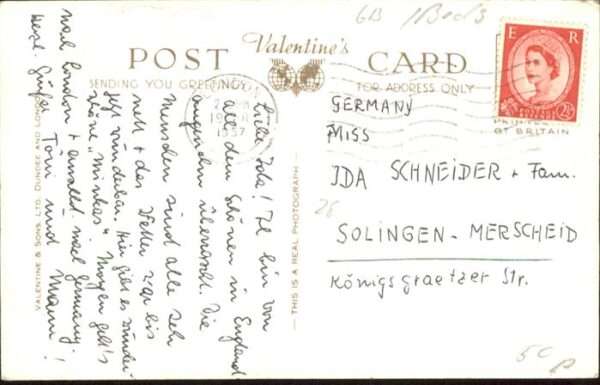 GB 1Bed's
POST Valentine's CARD
SENDING YOU GREETINGS
FOR ADDRESS ONLY
E R
POSTAGE REVENUE
2½
PRINTED
GT BRITAIN
1957
VALENTINE & SONS, LTD. DUNDEE AND LONDON
— THIS IS A REAL PHOTOGRAPH —
Liebe Ida! Ich bin von
all dem Schönen in England
angenehm überrascht. Die
Menschen sind alle sehr
nett + das Wetter war bis
jetzt wunderbar. Hier gibt es wunder-
schöne "Minkas". Morgen geht's
nach London + anschl. nach Germany.
Herzl. Grüße
Toni und Mann!
GERMANY
MISS
IDA SCHNEIDER + Fam.
28
SOLINGEN-MERSCHEID
Königsgraetzer Str.
5C